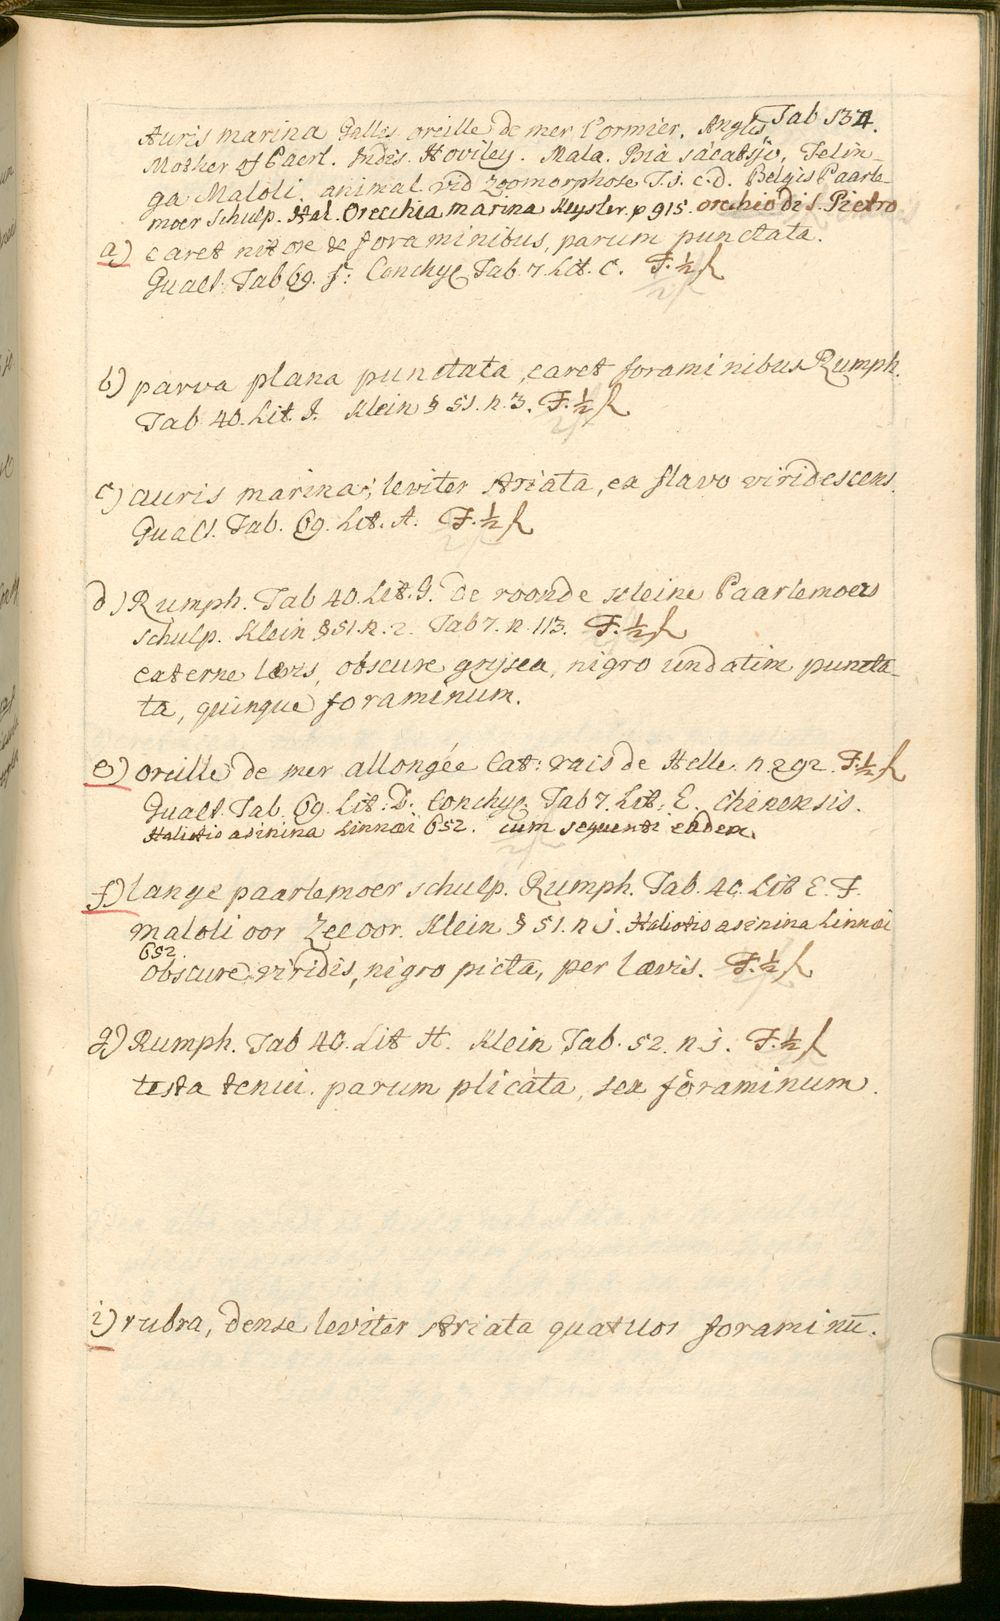 Tab 134.
Auris marina Gallis oreille de mer l'ormier, Anglis
Mother of Paerl. Indis. Hoviley. Mala. Bia sácatsjo, Telin-
ga Maloli. animal vid Zoomorphose T.j. c.d. Belgis Paarle-
moer schulp. Hal. Orecchia marina Keysler. p 915. orechio di S. Pietro
a) caret nitore & foraminibus, parum punctata.
Gualt. Tab 69. f: Conchyl Tab 7. Lit. C. F. ½ fl
b) parva plana punctata, caret foraminibus Rumph.
Tab 40. Lit. J. Klein § 51. n. 3. F. ½ fl
c) auris marina, leviter striata, ex flavo viridescens.
Gualt. Tab. 69. Lit. A. F. ½ fl
d) Rumph. Tab 40. Lit. G. de roonde kleine Paarlemoer
schulp. Klein § 51. n. 2. Tab 7. n. 113. F. ½ fl
externe lævis, obscure grysea, nigro undatim puncta-
ta, quinque foraminum.
e) oreille de mer allongée Cat: rais de Helle. n. 292. F. ½ fl
Gualt. Tab. 69. Lit. D. Conchyl. Tab 7. Lit. E. Chinensis.
Haliotis asinina Linnæi 652. cum sequenti eadem.
f) lange paarlemoer schulp. Rumph. Tab. 40. Lit E. F.
maloli oor Zee oor. Klein § 51. n j. Haliotis asinina Linnæi
652.
obscure viridis, nigro picta, per lævis. F. ½ fl
g) Rumph. Tab 40. Lit H. Klein Tab. 52. n. j. F. ½ fl
testa tenui. parum plicata, sex foraminum.
i) rubra, dense leviter striata quatuor foraminū.